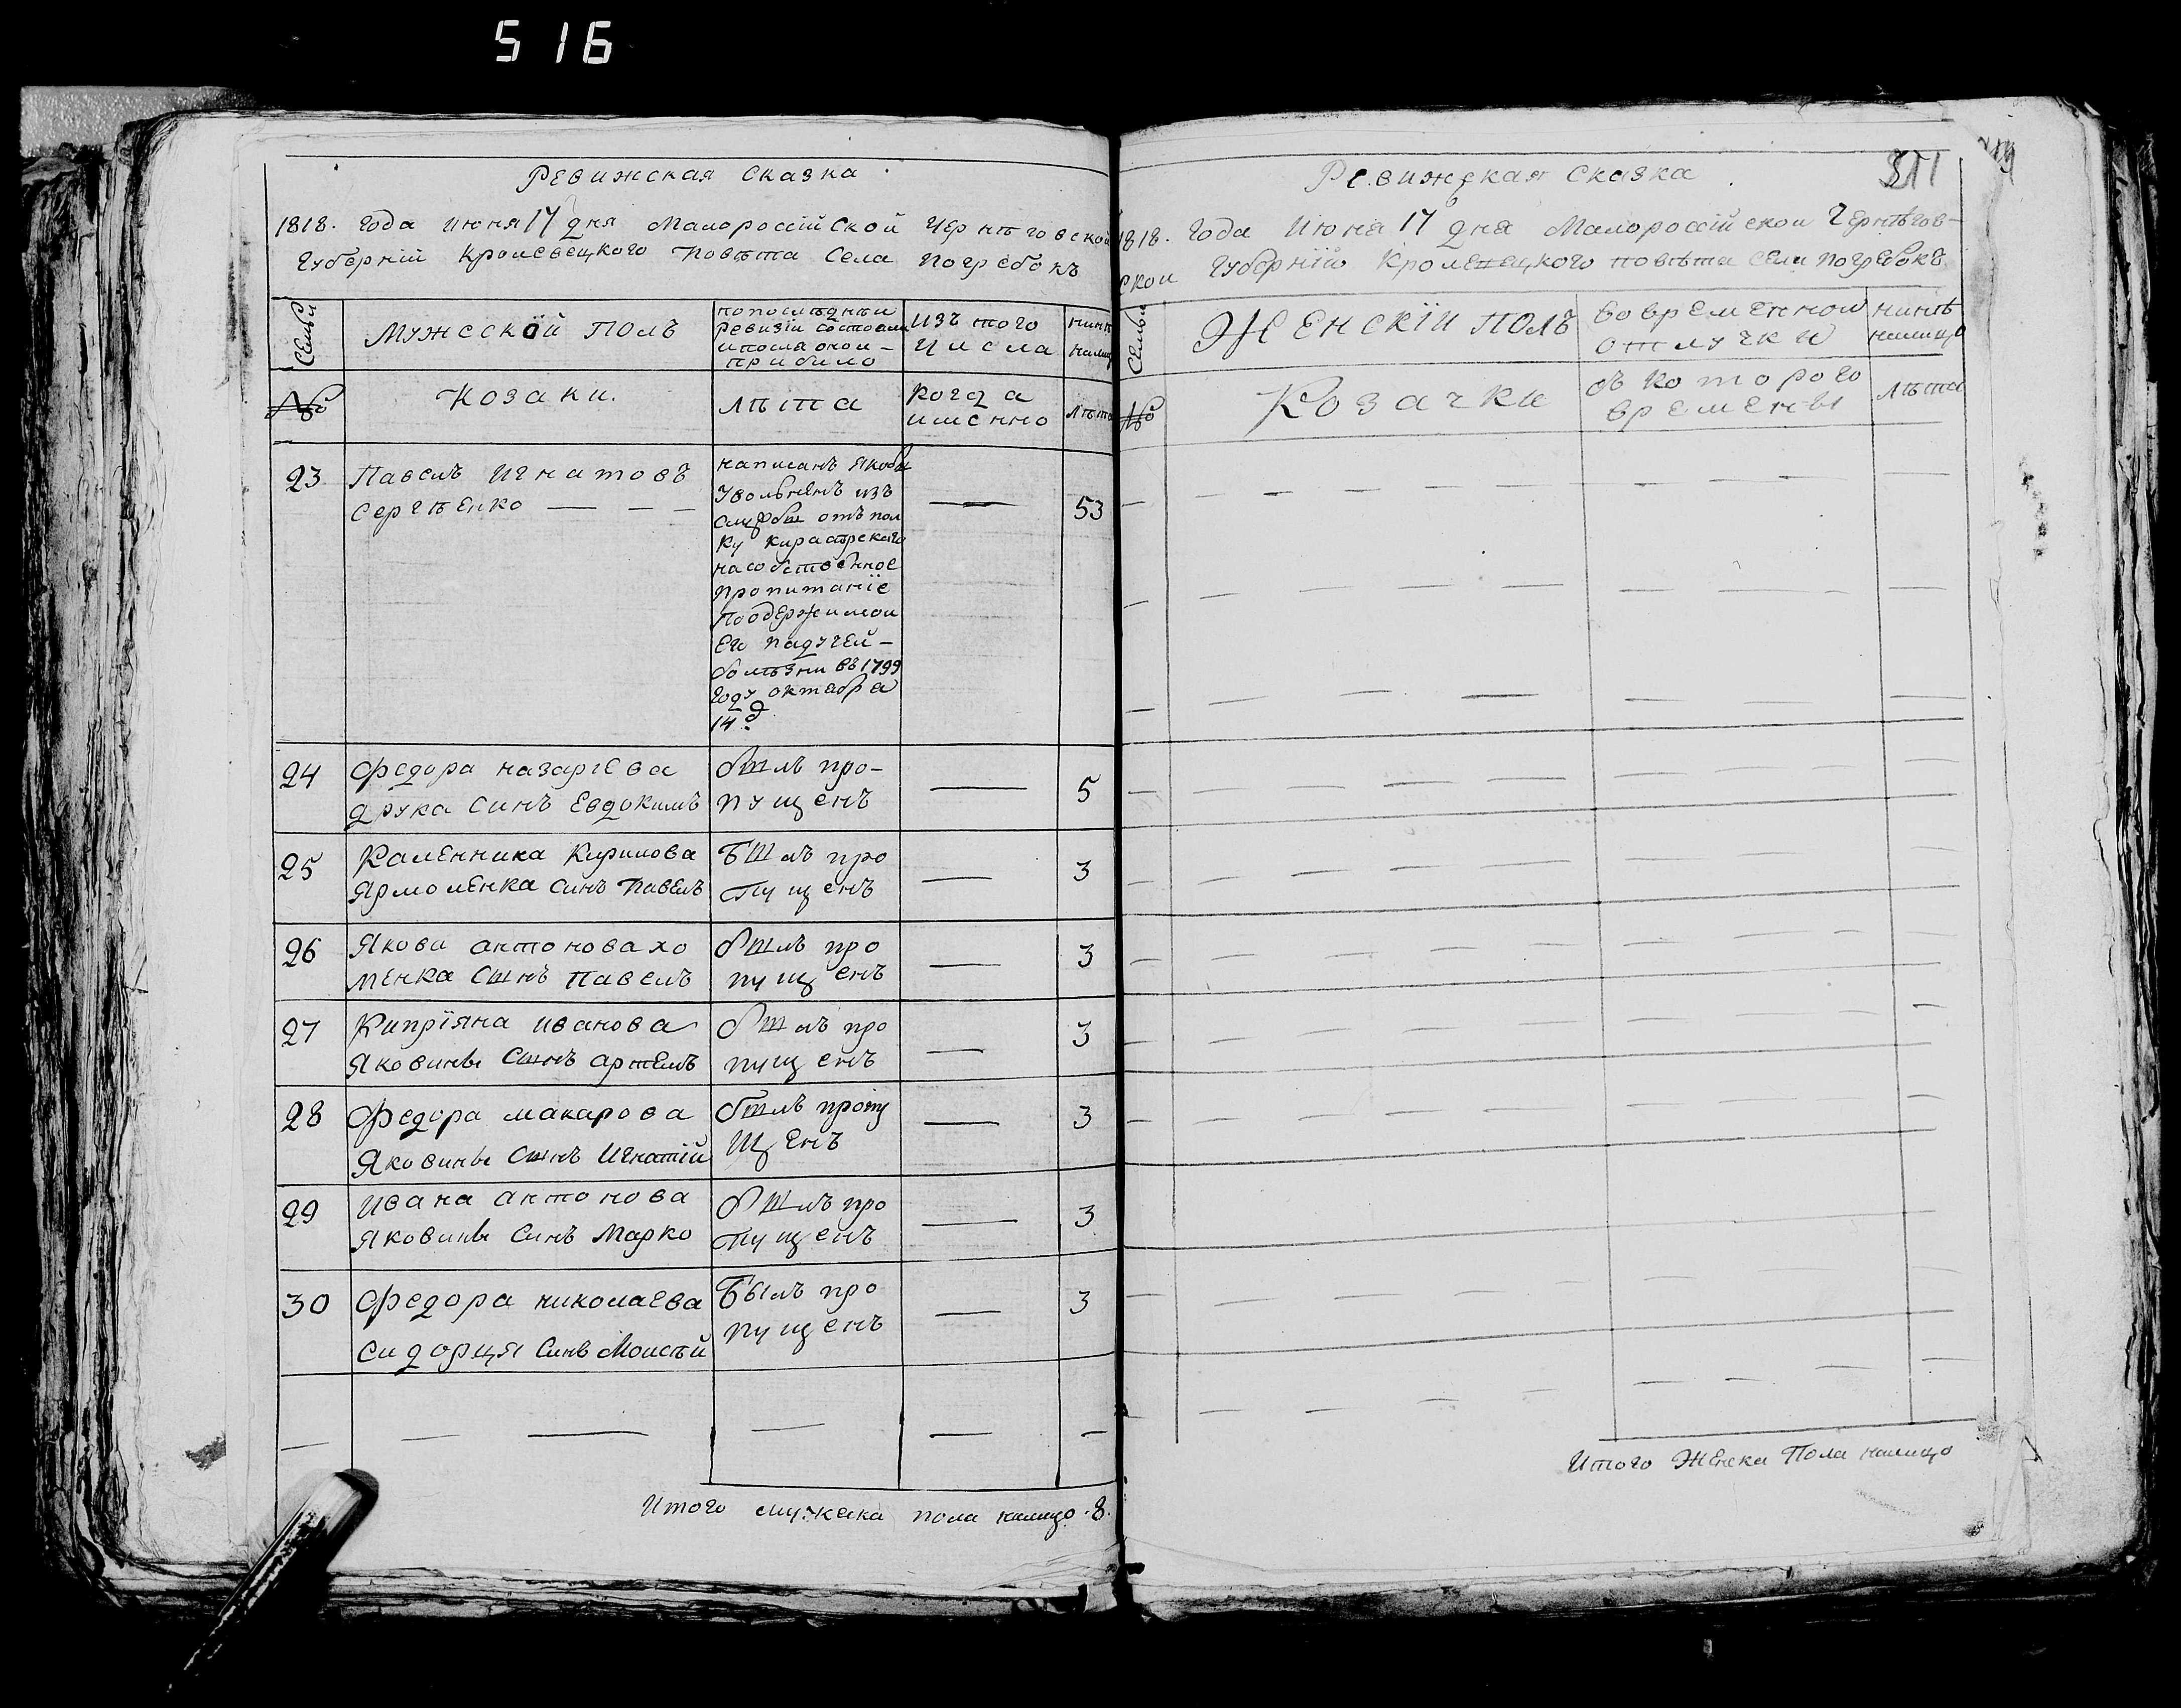 516
Ревижская Сказка
1818. года Июня 17 дня Малороссійской Чернѣговской
Губерніи Кролевецкого Повѣта Села Погребокъ
Семьи
Мужеской полъ
по последнѣи
ревизіи состояли
и посла онои –
прибило
изъ того
числа
нинѣ
налицо
№
Козаки.
лѣта
когда
именно
лѣта
23
Павелъ Игнатовъ
Сергѣенко — — —
написанъ якобы
уволненъ изъ
службы отъ пол
ку кирасирского
на собственное
пропитаніе
по одержимой
его падучей –
болѣзни въ 1799
году октабра
14 д.
—
53
24
Федора назаріева
друка синъ Евдокимъ
былъ про-
пущенъ
—
5
25
Каленника Кирилова
Ярмоленка синъ Павелъ
Былъ про
пущенъ
—
3
26
Якова антонова хо
менка сынъ Павелъ
былъ про
пущенъ
—
3
27
Кипріяна иванова
Яковины сынъ артемъ
былъ про
пущенъ
—
3
28
Федора макарова
Яковины сынъ Игнатій
былъ пропу
щенъ
—
3
29
Ивана антонова
Яковины синъ Марко
былъ про
пущенъ
—
3
30
Федора николаева
Сидорця синъ Моисѣй
Былъ про
пущенъ
—
3
Итого мужеска пола налицо .8.
Ревижская Сказка
311
1818. Года Июня 17 дня Малороссійскои Чернѣгов-
скои Губерніи Кролевецкого повѣта села Погребокъ
Семьи
Женскіи полъ
во временной
отлучки
нинѣ
налицо
№
Козачки
съ которого
времены
лѣта
Итого Женска Пола налицо